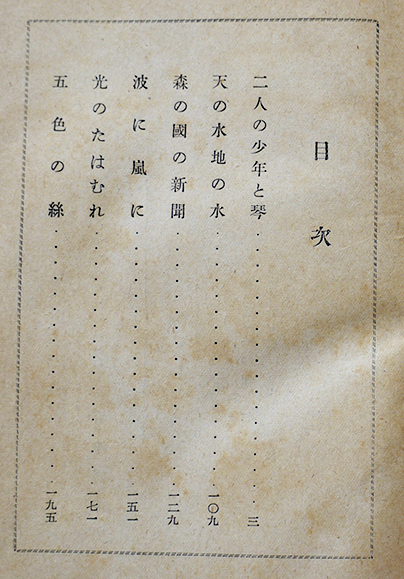 目次
二人の少年と琴・・・・・・・・・・・・・・・三
天の水地の水・・・・・・・・・・・・・・・一〇九
森の國の新聞・・・・・・・・・・・・・・・一二九
波に嵐に・・・・・・・・・・・・・・・一五一
光のたはむれ・・・・・・・・・・・・・・・一七一
五色の絲・・・・・・・・・・・・・・・一九五